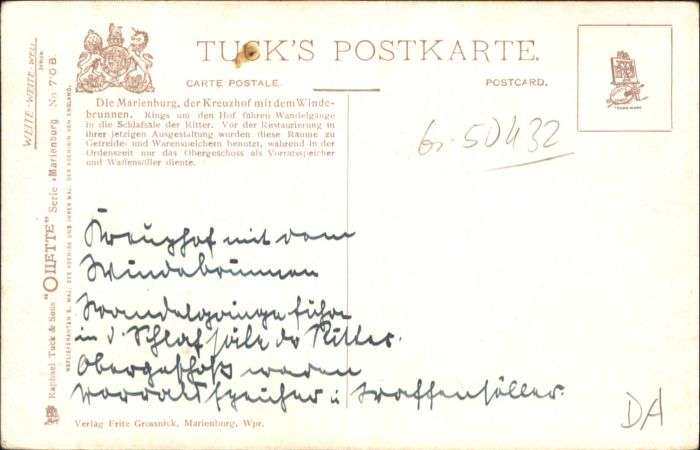 TUCK'S POSTKARTE.
CARTE POSTALE.
POSTCARD.
TRADE MARK
Die Marienburg, der Kreuzhof mit dem Winde-
brunnen. Rings um den Hof führen Wandelgänge
in die Schlafsäle der Ritter. Vor der Restaurierung in
ihrer jetzigen Ausgestaltung wurden diese Räume zu
Getreide- und Warenspeichern benutzt, während in der
Ordenszeit nur das Obergeschoss als Vorratsspeicher
und Waffensöller diente.
6r-50432
Kreuzhof mit dem
Windebrunnen
Wandelgänge führen
in d. Schlafsäle der Ritter.
Obergeschoß waren
Vorratsspeicher u. Waffensöller.
DA
Verlag Fritz Grossnick, Marienburg, Wpr.
Raphael Tuck & Sons "OILETTE" Serie „Marienburg" No 70B.
HOFLIEFERANTEN S. MAJ. DES KOENIGS UND IHRER MAJ. DER KOENIGIN VON ENGLAND.